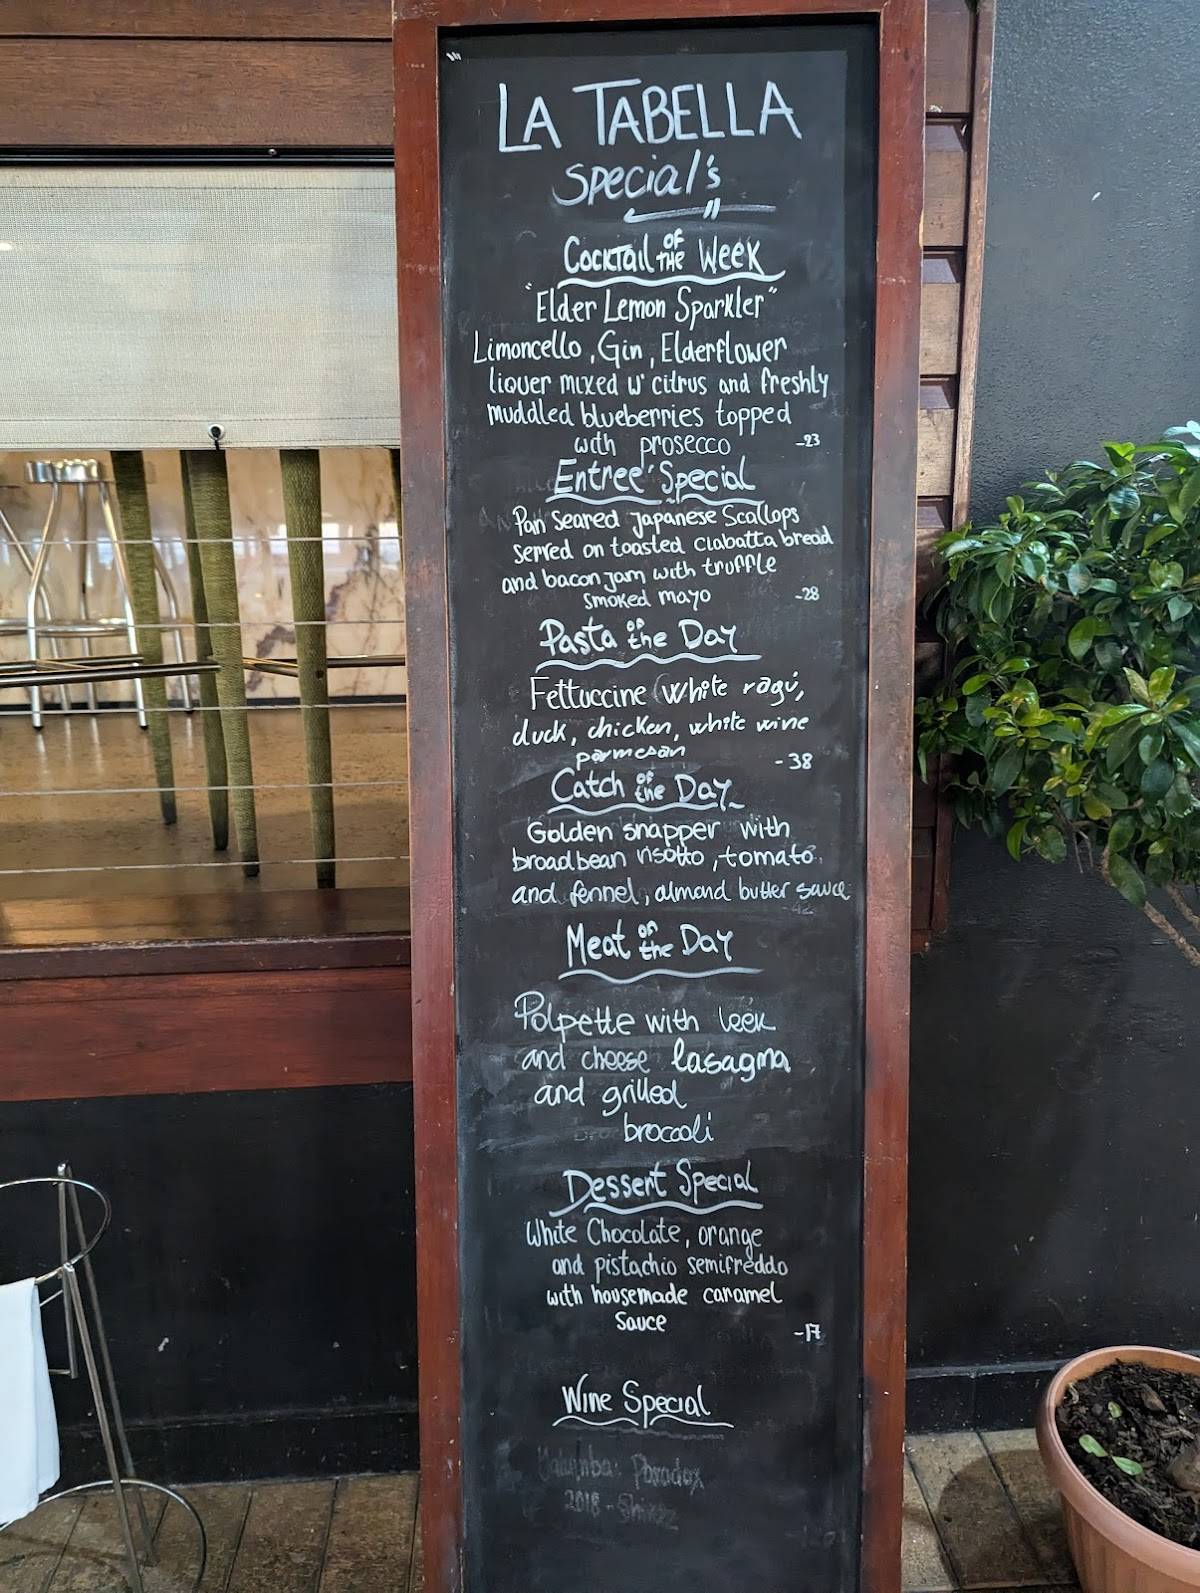 LA TABELLA
Special's
Cocktail OF THE Week
"Elder Lemon Sparkler"
Limoncello, Gin, Elderflower
liquer mixed w' citrus and freshly
muddled blueberries topped
with prosecco -23
Entree' Special
Pan Seared Japanese Scallops
Served on toasted ciabatta bread
and bacon jam with truffle
smoked mayo -28
Pasta of the Day
Fettuccine white ragú,
duck, chicken, white wine
parmesan -38
Catch of the Day
Golden snapper with
broadbean risotto, tomato
and fennel, almond butter sauce
-42
Meat of the Day
Polpette with leek
and cheese lasagma
and grilled
broccoli
Dessert Special
White Chocolate, orange
and pistachio semifreddo
with housemade caramel
Sauce -17
Wine Special
Paradox
2018 - Shiraz